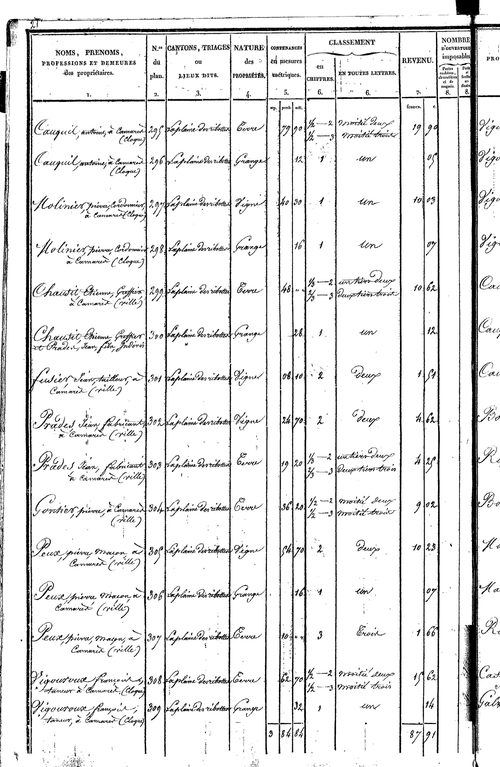 NOMS, PRENOMS, PROFESSIONS ET DEMEURES des propriétaires. N.os du plan. CANTONS, TRIAGES ou LIEUX DITS. NATURE des PROPRIÉTÉS. CONTENANCES en mesures métriques. CLASSEMENT en CHIFFRES. EN TOUTES LETTRES. REVENU. NOMBRE D'OUVERTURES imposables
1. 2. 3. 4. 5. 6. 6. 7. 8. 8.
arp. perch. mèt. francs. c.
Cauquil, antoine, à Camarès (Clogue) 295 Laplaine des ribottes Terre 79 90 1/2 — 2 moitié deux 19 90
1/2 — 3 moitié trois
Cauquil, antoine, à Camarès (Clogue) 296 Laplaine des ribottes Grange 12 1 un 05
Molinier, pierre, Cordonnier, à Camarès (Clogue) 297 Laplaine des ribottes Vigne 40 30 1 un 10 03
Molinier, pierre, Cordonnier à Camarès (Clogue) 298 Laplaine des ribottes Grange 16 1 un 07
Chausit, Etienne, Greffier à Camarès (ville) 299 Laplaine des ribottes Terre 48 1/3 — 2 un tiers deux 10 62
2/3 — 3 deux tiers trois
Chausit, Etienne, Greffier et Prades, Jean, fils, 300 Laplaine des ribottes Grange 28 1 un 12
Jean, tailleur, à Camarès (ville) 301 Laplaine des ribottes Vigne 08 10 2 deux 1 51
Prades Jean fabricant à Camarès (ville) 302 Laplaine des ribottes Vigne 24 70 2 deux 4 62
Prades Jean, fabricant à Camarès (ville) 303 Laplaine des ribottes Terre 19 20 1/3 — 2 un tiers deux 4 25
2/3 — 3 deux tiers trois
Gontier, pierre, à Camarès (ville) 304 Laplaine des ribottes Terre 36 20 1/2 — 2 moitié deux 9 02
1/2 — 3 moitié trois
Peux, pierre, maçon, à Camarès (ville) 305 Laplaine des ribottes Vigne 54 70 2 deux 10 23
Peux pierre maçon, à Camarès (ville) 306 Laplaine des ribottes Grange 16 1 un 07
Peux, pierre, maçon, à Camarès (ville) 307 Laplaine des ribottes Terre 10 3 Trois 1 66
Vigouroux françois, taneur, à Camarès (Clogue) 308 Laplaine des ribottes Terre 62 70 1/2 — 2 moitié deux 15 62
1/2 — 3 moitié trois
Vigouroux, françois, taneur, à Camarès (Clogue) 309 Laplaine des ribottes Grange 32 1 un 14
3 84 84 87 91